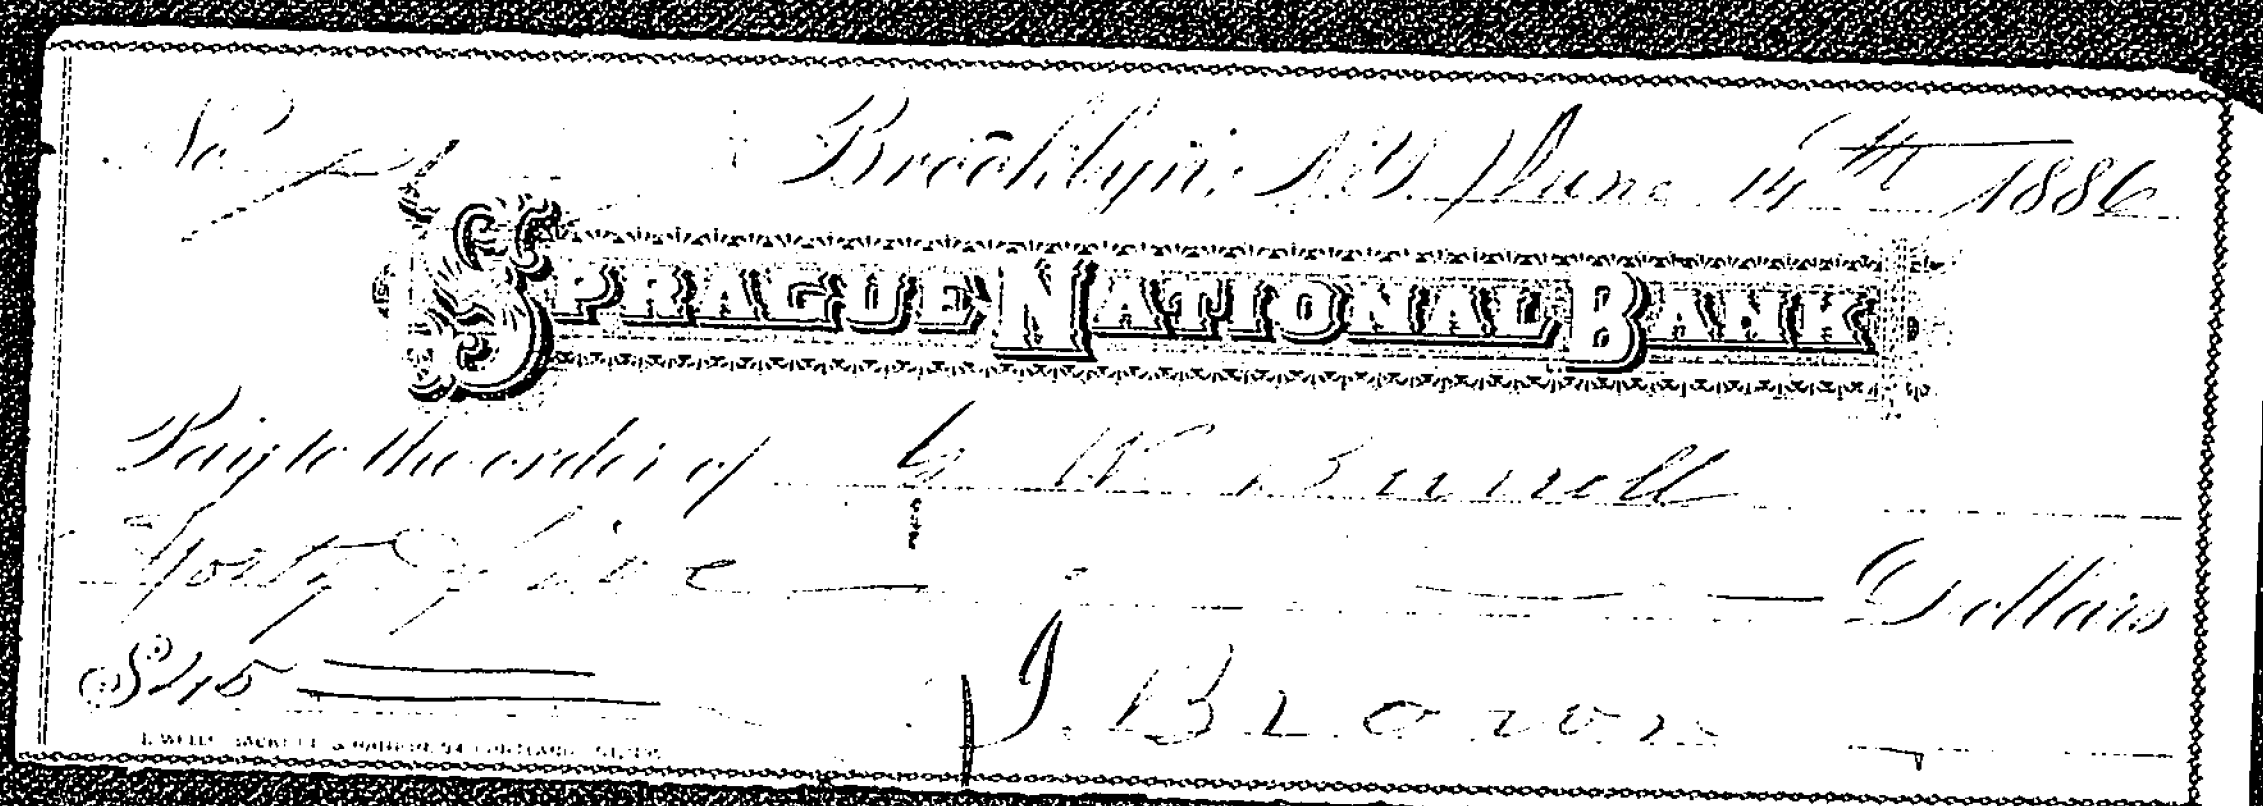 No
Brooklyn, N.Y. June 14th 1886
SPRAGUE NATIONAL BANK
Pay to the order of G W Burrell
Forty five Dollars
$45
J. Brown